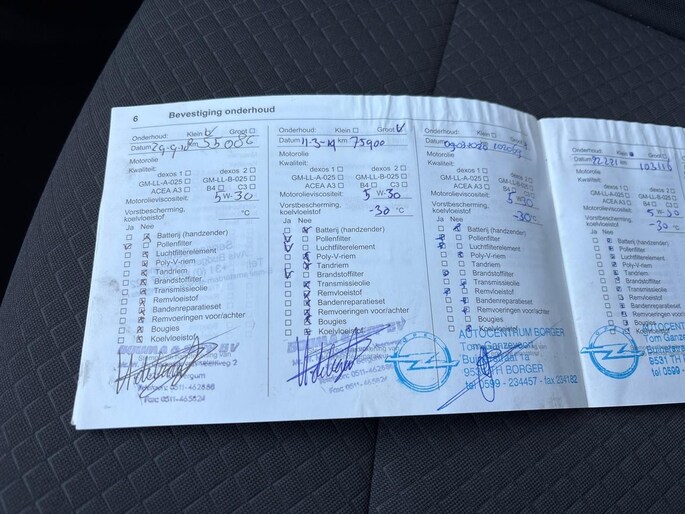 6 Bevestiging onderhoud
Onderhoud: Klein Groot
Datum km 55006
Motorolie
Kwaliteit:
dexos 1 dexos 2
GM-LL-A-025 GM-LL-B-025
ACEA A3 B4 C3
Motorolieviscositeit: 5 W-30
Vorstbescherming, koelvloeistof °C
Ja Nee
Batterij (handzender)
Pollenfilter
Luchtfilterelement
Poly-V-riem
Tandriem
Brandstoffilter
Transmissieolie
Remvloeistof
Bandenreparatieset
Remvoeringen voor/achter
Bougies
Koelvloeistof
0511-462888
Fax: 0511-465824
Onderhoud: Klein Groot
Datum 11-3-19 km 75900
Motorolie
Kwaliteit:
dexos 1 dexos 2
GM-LL-A-025 GM-LL-B-025
ACEA A3 B4 C3
Motorolieviscositeit: 5 W-30
Vorstbescherming, koelvloeistof -30 °C
Ja Nee
Batterij (handzender)
Pollenfilter
Luchtfilterelement
Poly-V-riem
Tandriem
Brandstoffilter
Transmissieolie
Remvloeistof
Bandenreparatieset
Remvoeringen voor/achter
Bougies
Koelvloeistof
Onderhoud: Klein Groot
Datum
Motorolie
Kwaliteit:
dexos 1 dexos 2
GM-LL-A-025 GM-LL-B-025
ACEA A3 B4 C3
Motorolieviscositeit: 5 W-30
Vorstbescherming, koelvloeistof -30 °C
Ja Nee
Batterij (handzender)
Pollenfilter
Luchtfilterelement
Poly-V-riem
Tandriem
Brandstoffilter
Transmissieolie
Remvloeistof
Bandenreparatieset
Remvoeringen voor/achter
Bougies
AUTOCENTRUM BORGER
Tom Ganzevoort
9531 TH BORGER
tel 0599 - 234457 - fax 234182
Onderhoud: Klein Groot
Datum km
Motorolie
Kwaliteit:
dexos 1 dexos 2
GM-LL-A-025 GM-LL-B-025
ACEA A3 B4 C3
Motorolieviscositeit: 5 W-30
Vorstbescherming, koelvloeistof -30 °C
Ja Nee
Batterij (handzender)
Pollenfilter
Luchtfilterelement
Poly-V-riem
Tandriem
Brandstoffilter
Transmissieolie
Remvloeistof
Bandenreparatieset
Remvoeringen voor/achter
Bougies
Koelvloeistof
Tom Ganze
9531 TH
tel 0599 -